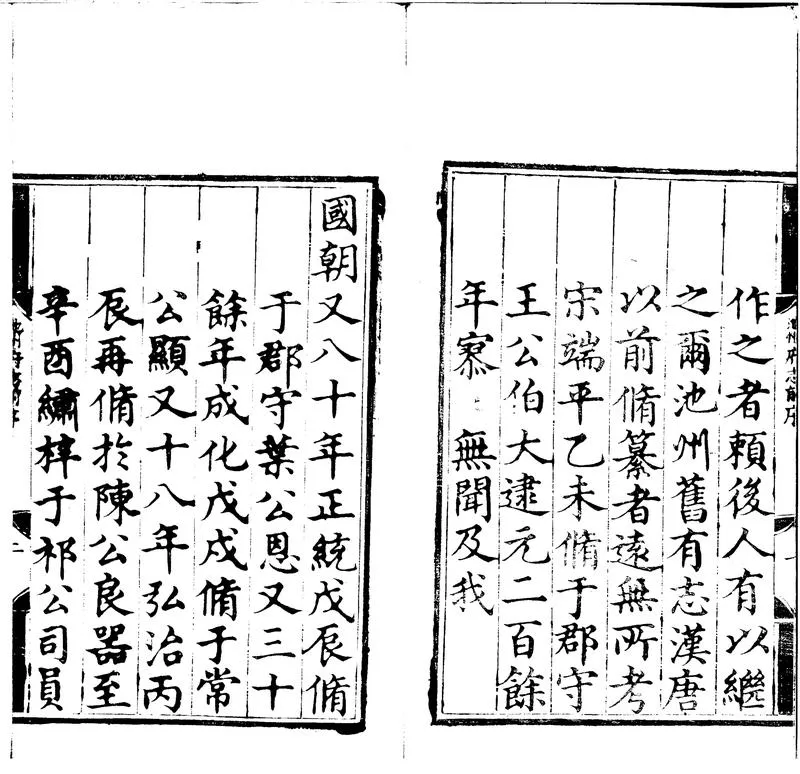 作之者賴後人有以繼
之爾池州舊有志漢唐
以前脩纂者遠無所考
宋端平乙未脩于郡守
王公伯大逮元二百餘
年寥 無聞及我
國朝又八十年正統戊辰脩
于郡守葉公恩又三十
餘年成化戊戌脩于常
公顯又十八年弘治丙
辰再脩於陳公良器至
辛酉繡梓于祁公司員
二